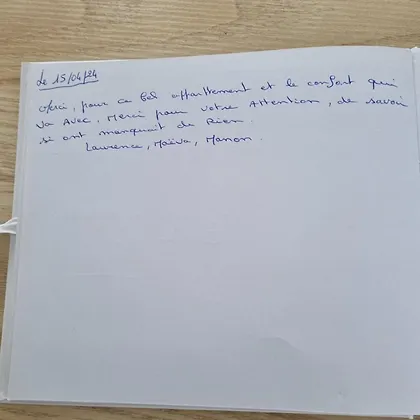 Le 15/04/24
Merci, pour ce bel appartement et le confort qui
va avec, Merci pour votre Attention, de savoir
si ont manquait de Rien.
Laurence, Maëva, Manon.